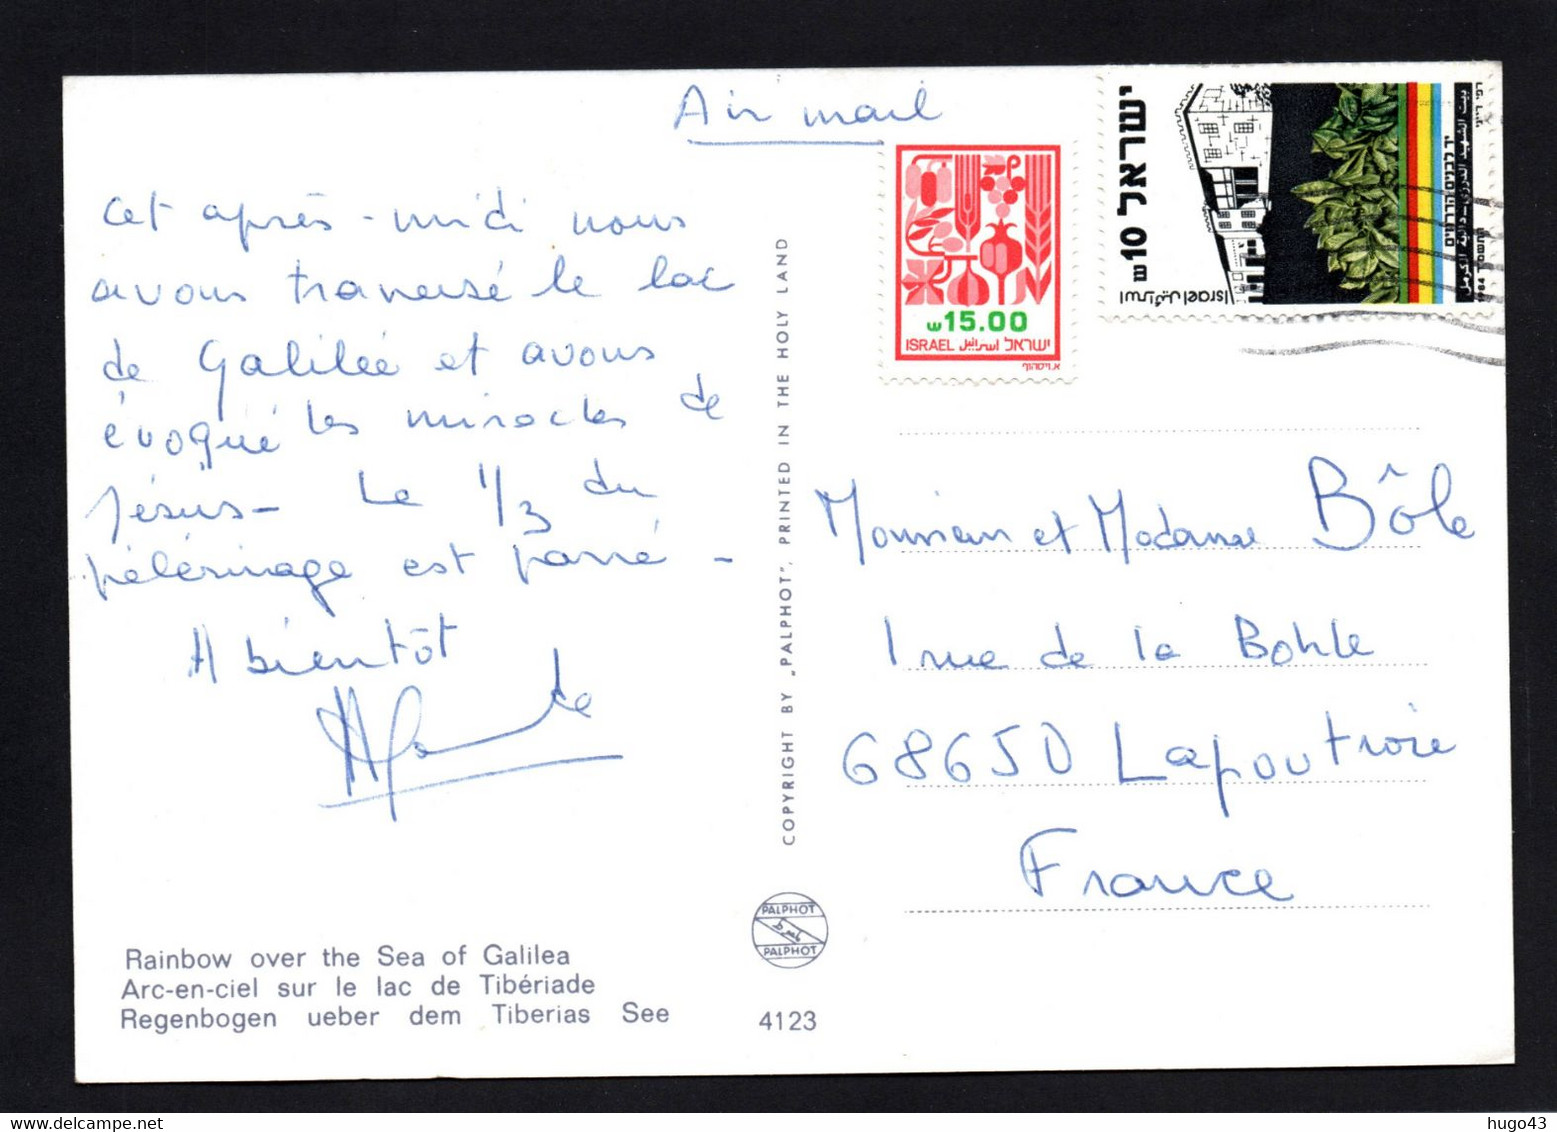 Air mail
Cet après-midi nous
avons traversé le lac
de Galilée et avons
évoqué les miracles de
Jésus - Le 1/3 du
pélérinage est passé -
A bientôt
Rainbow over the Sea of Galilea
Arc-en-ciel sur le lac de Tibériade
Regenbogen ueber dem Tiberias See
4123
PALPHOT
PALPHOT
COPYRIGHT BY „PALPHOT", PRINTED IN THE HOLY LAND
ש15.00
ISRAEL اسرائيل ישראל
א.ויסהוף
ישראל 10 ש
اسرائيل Israel
יד לבנים הדרוזים
بيت الشهيد الدرزي - دالية الكرمل
1984 התשמ"ד
Monsieur et Madame Bôle
1 rue de la Bohle
68650 Lapoutroie
France
hugo43